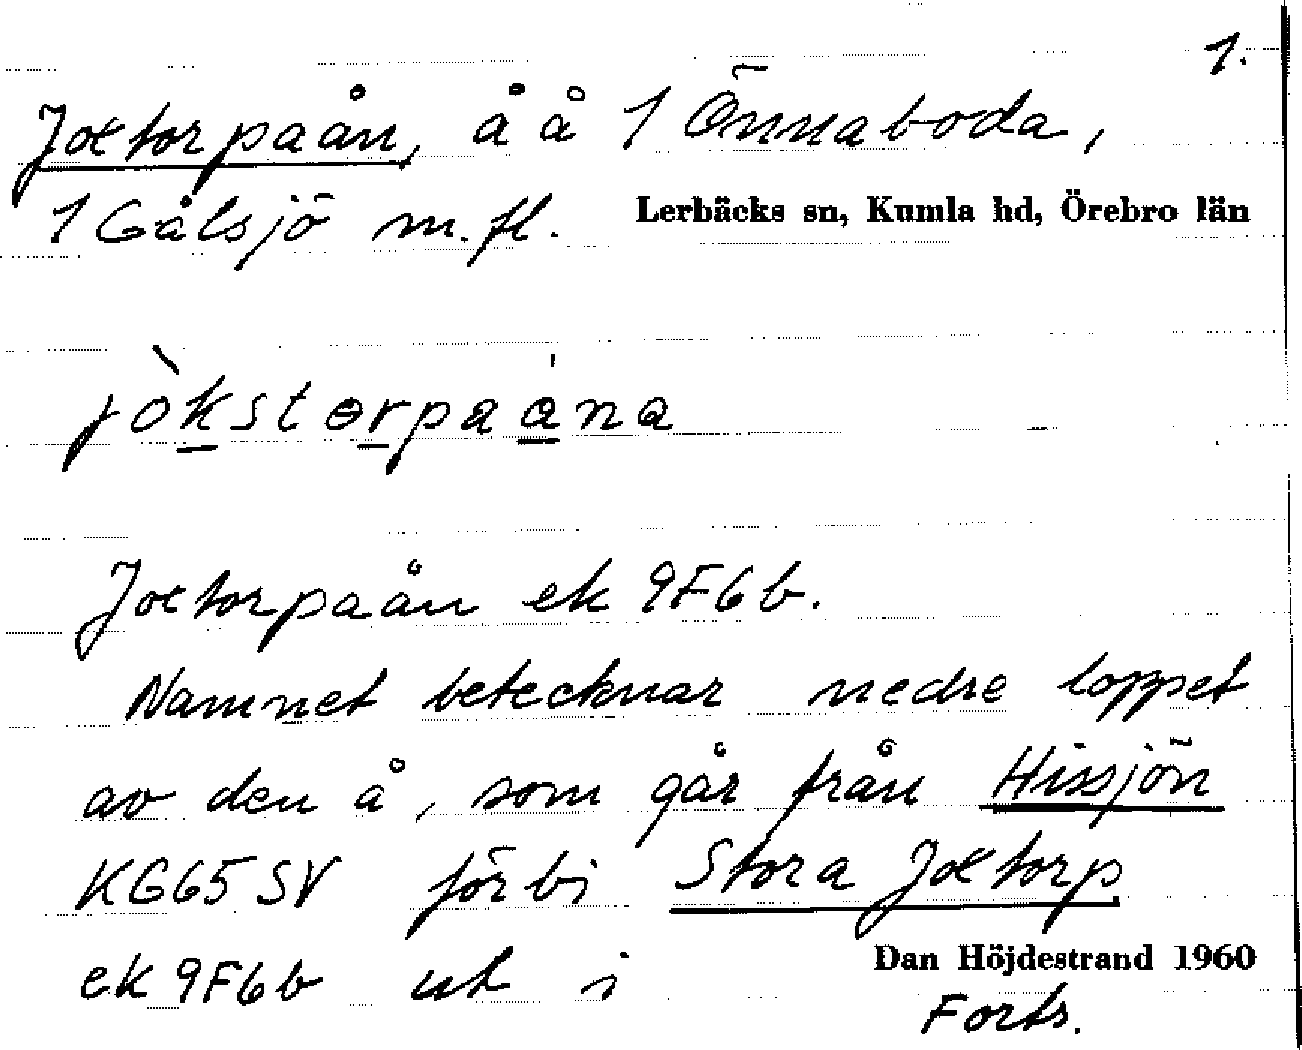 1.
Joxtorpaån, å å 1 Önnaboda,
1 Gålsjö m.fl. Lerbäcks sn, Kumla hd, Örebro län
jòkstɵrpaána
Joxtorpaån ek 9F6b.
Namnet betecknar nedre loppet
av den å, som går från Hissjön
KG65SV förbi Stora Joxtorp
ek 9F6b ut i
Dan Höjdestrand 1960
Forts.